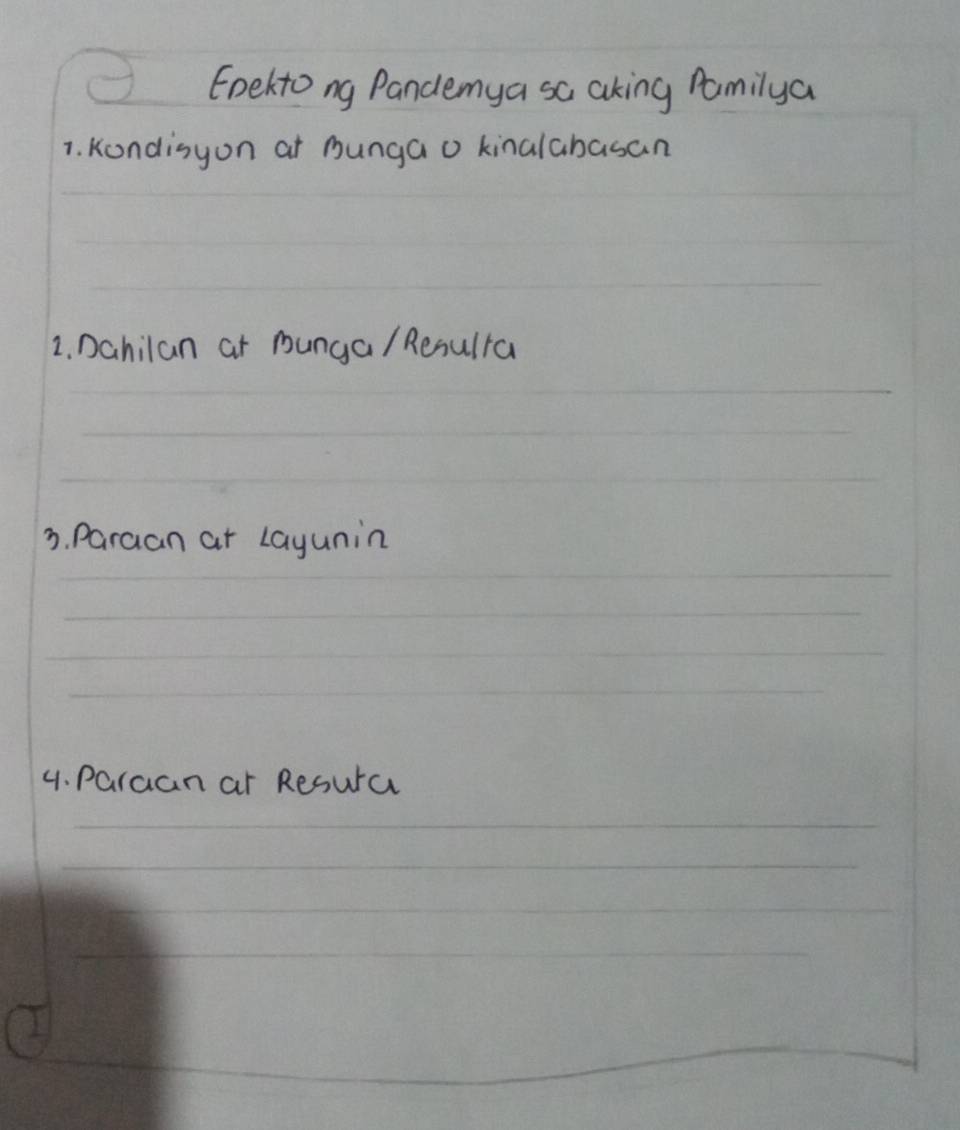 Epekto ng Pandemya sa aking Pamilya
1. Kondisyon at Bunga o kinalabasan
2. Dahilan at Bunga/Resulta
3. Paraan at Layunin
4. Paraan at Resuta